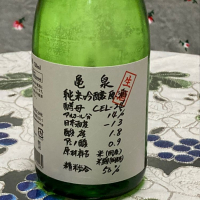 亀泉
生
純米吟醸原酒
酵母 CEL-24
アルコール分 14%
日本酒度 -13
酸度 1.8
アミノ酸 0.9
原材料名 米(国産)
米麹(国産米)
精米歩合 50%